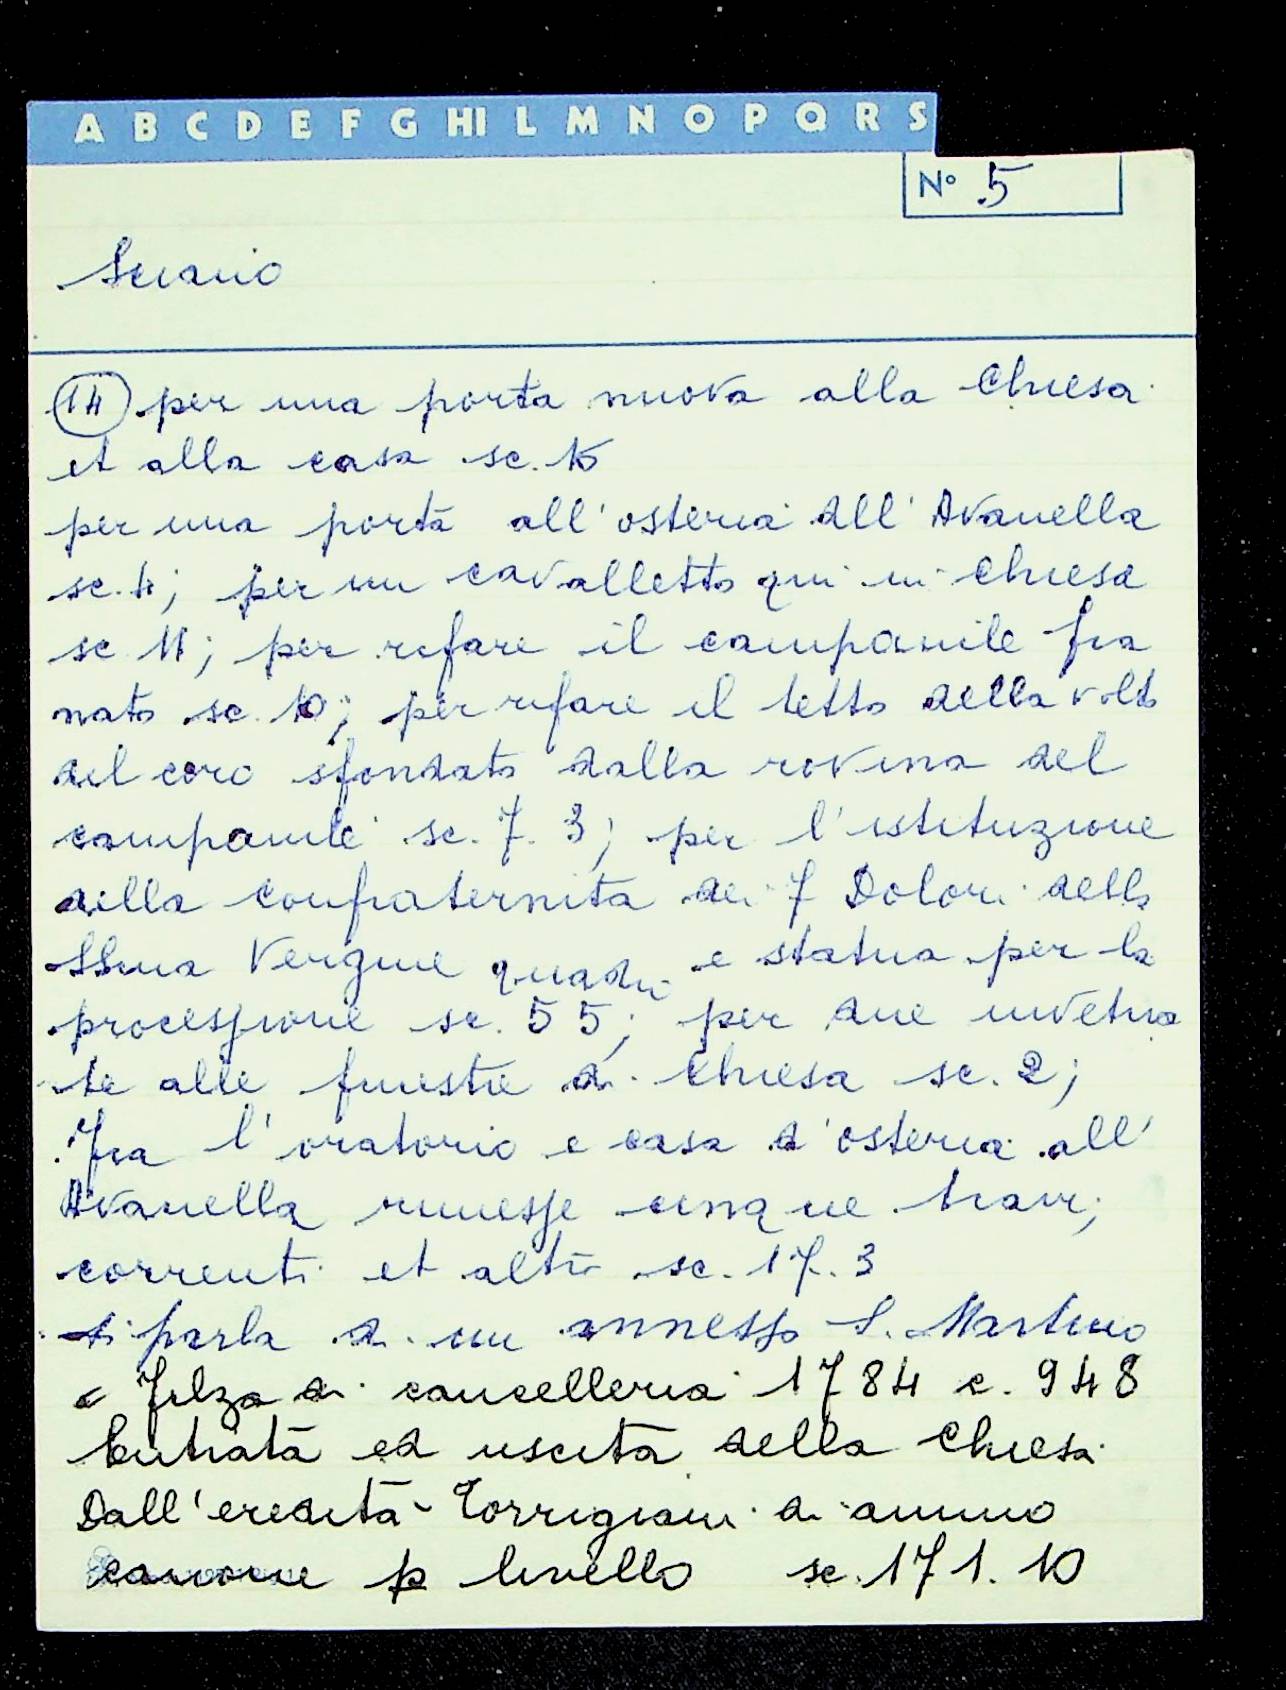 A B C D E F G HI L M N O P Q R S
N° 5
Sciano
14 per una porta nuova alla Chiesa
et alla casa sc. 15
per una porta all'osteria all'Avanella
sc. 4; per un cavalletto qui in Chiesa
sc 11; per rifare il campanile fra
nato sc. 10; per rifare il tetto della volta
del coro sfondato dalla rovina del
campanile sc. 7. 3; per l'istituzione
della confraternita dei 7 Dolori della
SSma Vergine quadri e statua per la
processione sc. 55; per due invetria
te alle finestre di Chiesa sc. 2;
Fra l'oratorio e casa d'osteria all'
Avanella rimesse cinque travi;
correnti et altro sc. 17. 3
si parla di un annesso S. Martino
Filza di cancelleria 1784 c. 948
Entrata ed uscita della Chiesa
Dall'eredità Torrigiani di annuo
canone p livello sc. 171. 10